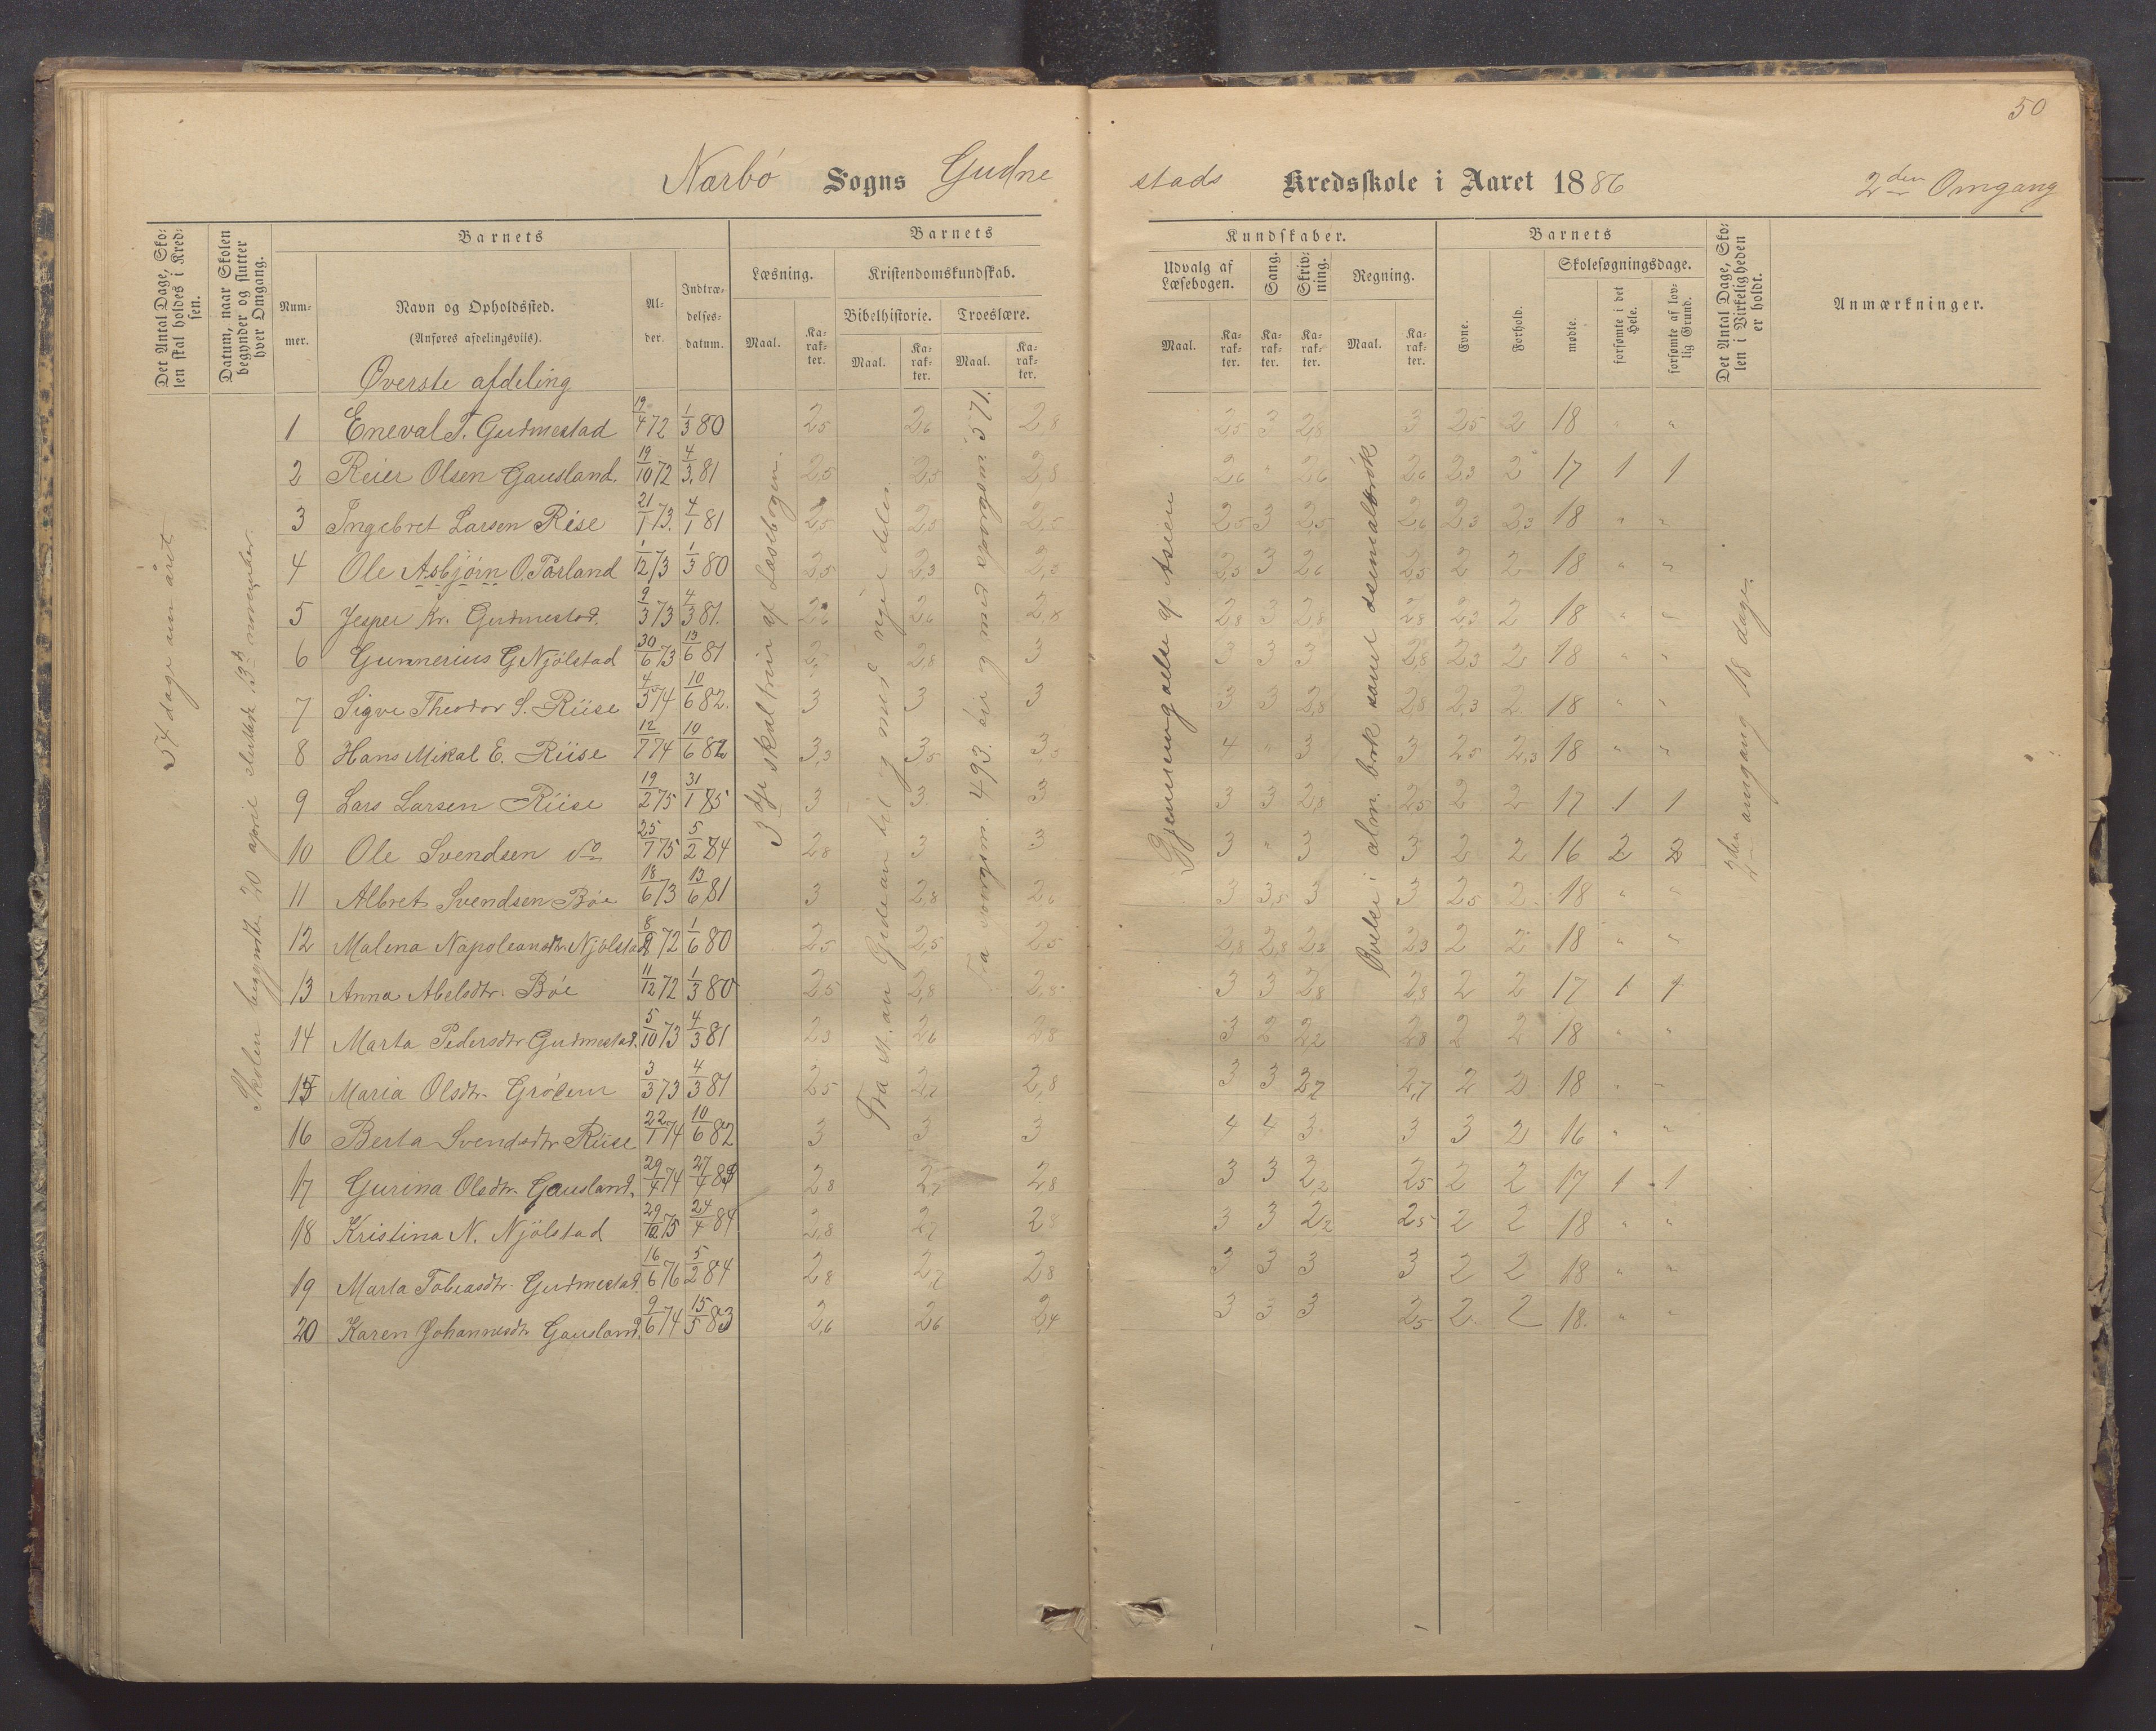 50
Nærbø Sogns Gudne
stads Kredsskole i Aaret 1886 2den Omgang
Det Antal Dage, Skolen skal holdes i Kredsen.
Datum, naar Skolen begynder og slutter hver Omgang.
Barnets
Nummer.
Navn og Opholdssted.
(Anføres afdelingsviis).
Alder.
Indtrædelsesdatum.
Barnets
Læsning.
Maal.
Karakter.
Kristendomskundskab.
Bibelhistorie.
Maal.
Karakter.
Troeslære.
Maal.
Karakter.
Kundskaber.
Udvalg af Læsebogen.
Maal.
Karakter.
Sang.
Karakter.
Skrivning.
Karakter.
Regning.
Maal.
Karakter.
Barnets
Evne.
Forhold.
Skolesøgningsdage.
mødte.
forsømte i det Hele.
forsømte af lovlig Grund.
Det Antal Dage, Skolen i Virkeligheden er holdt.
Anmærkninger.
Øverste afdeling
54 dage om året
Skolen begyndte 20 april sluttede 13de november.
3dje skaltrin af Læsebogen.
Fra st. an Gideon til og med nye delen
Fra spørgsm. 493 og til og med spørgsm. 571.
Gjennemgåelse af Asien
Øvelse i alm. brøk samt desimalbrøk
2den omgang 18 dage.
1 Eneval T. Gudmestad 19/4 72 1/3 80 2,5 2,6 2,8 2,5 3 2,8 3 2,5 2 18 " "
2 Reier Olsen Gausland. 19/10 72 4/3 81 2,5 2,5 2,8 2,6 " 2,6 2,6 2,3 2 17 1 1
3 Ingebret Larsen Rise 21/1 73. 4/1 81 2,5 2,5 2,5 2,5 3 2,5 2,6 2,3 2,3 18 " "
4 Ole Asbjørn O. Tårland 1/12 73 1/3 80 2,5 2,3 2,3 2,3 3 2,6 2,5 2 2 18 " "
5 Jesper Kr. Gudmestad. 9/3 73 4/3 81. 2,6 2,6 2,8 2,8 3 2,8 2,8 2,3 2 18 " "
6 Gunnerius G Njølstad 30/6 73 13/6 81 2,8 3 3 3 3 2,8 2,3 2 18 " "
7 Sigve Theodor S. Riise 4/5 74 10/6 82. 3 3 3 3 3 2,8 2,8 2,3 2 18 " "
8 Hans Mikal E. Riise 12/7 74 10/6 82 3,3 3,5 3,5 4 " 3 3 2,5 2,3 18 " "
9 Lars Larsen Riise 19/2 75 31/1 85 3 3 3 3 3 2,8 2,5 2 2 17 1 1
10 Ole Svendsen do 25/7 75 5/2 84 2,8 3 3 3 " 3 3 2 2 16 2 2
11 Albret Svendsen Bøe 18/6 73 13/6 81 3 2,8 2,6 3 3,5 3 3 2,5 2 18 " "
12 Malena Napoleonsdtr. Njølstad 8/9 72 1/6 80 2,5 2,5 2,5 2,8 2,8 2,3 2,3 2 2 18 " "
13 Anna Abelsdtr. Bøe 11/12 72 1/3 80 2,5 2,8 2,8 3 3 2,8 2,8 2 2 17 1 1
14 Marta Pedersdtr Gudmestad. 5/10 73 4/3 81 2,3 2,6 2,8 3 2 2,2 2,8 2 2 18 " "
15 Maria Olsdtr. Grødem 3/3 73 4/3 81 2,5 2,7 2,8 3 3 2,7 2,7 2 2 18 " "
16 Berta Svendsdtr Riise 22/1 74 10/6 82 3 3 3 4 4 3 3 3 2 16 " "
17 Gurina Olsdtr. Gausland. 29/4 74 27/4 2,8 2,7 2,8 3 3 2,2 2,5 2 2 17 1 1
18 Kristina N. Njølstad 29/12 75 24/4 84 2,8 2,7 2,8 3 3 2,2 2,5 2 2 18 " "
19 Marta Tobiasdtr. Gudmestad. 16/6 76 5/2 84 2,8 2,7 2,8 3 3 3 3 2 2 18 " "
20 Karen Johannesdtr Gausland. 9/6 74 15/5 83 2,6 2,6 2,4 3 3 3 2,5 2 2 18. " "